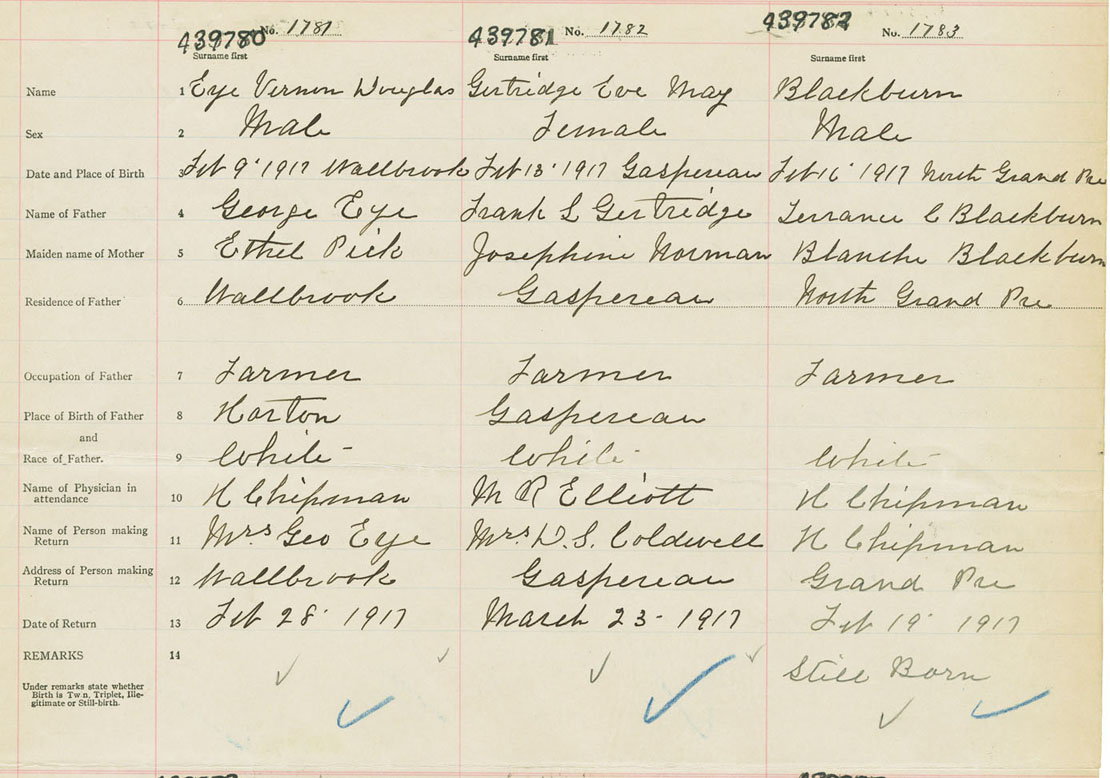 439780 No. 1781 439781 No. 1782 439782 No. 1783
Surname first Surname first Surname first
Name 1 Eye Vernon Douglas Gertridge Eve May Blackburn
Sex 2 Male Female Male
Date and Place of Birth 3 Feb 9 1917 Wallbrook Feb 13 1917 Gaspereau Feb 16 1917 North Grand Pre
Name of Father 4 George Eye Frank L Gertridge Terrance C Blackburn
Maiden name of Mother 5 Ethel Pick Josephine Norman Blanche Blackburn
Residence of Father 6 Wallbrook Gaspereau North Grand Pre
Occupation of Father 7 Farmer Farmer Farmer
Place of Birth of Father 8 Horton Gaspereau
and
Race of Father. 9 White White White
Name of Physician in
attendance 10 H Chipman M R Elliott H Chipman
Name of Person making
Return 11 Mrs Geo Eye Mrs D. S. Coldwell H Chipman
Address of Person making
Return 12 Wallbrook Gaspereau Grand Pre
Date of Return 13 Feb 28 1917 March 23 - 1917 Feb 19 1917
REMARKS 14 Still Born
Under remarks state whether
Birth is Twn, Triplet, Ille-
gitimate or Still-birth.